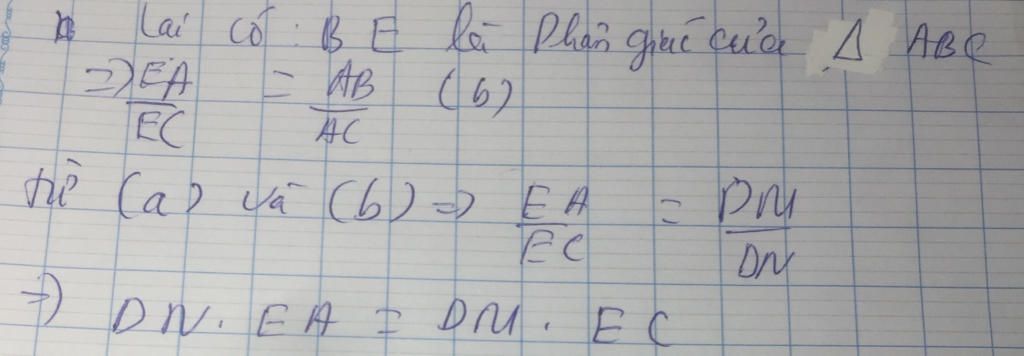 Lại có : BE là Phân giác của Δ ABC
=> EA/EC = AB/AC (b)
từ (a) và (b) => EA/EC = DM/DN
=> DN . EA = DM . EC